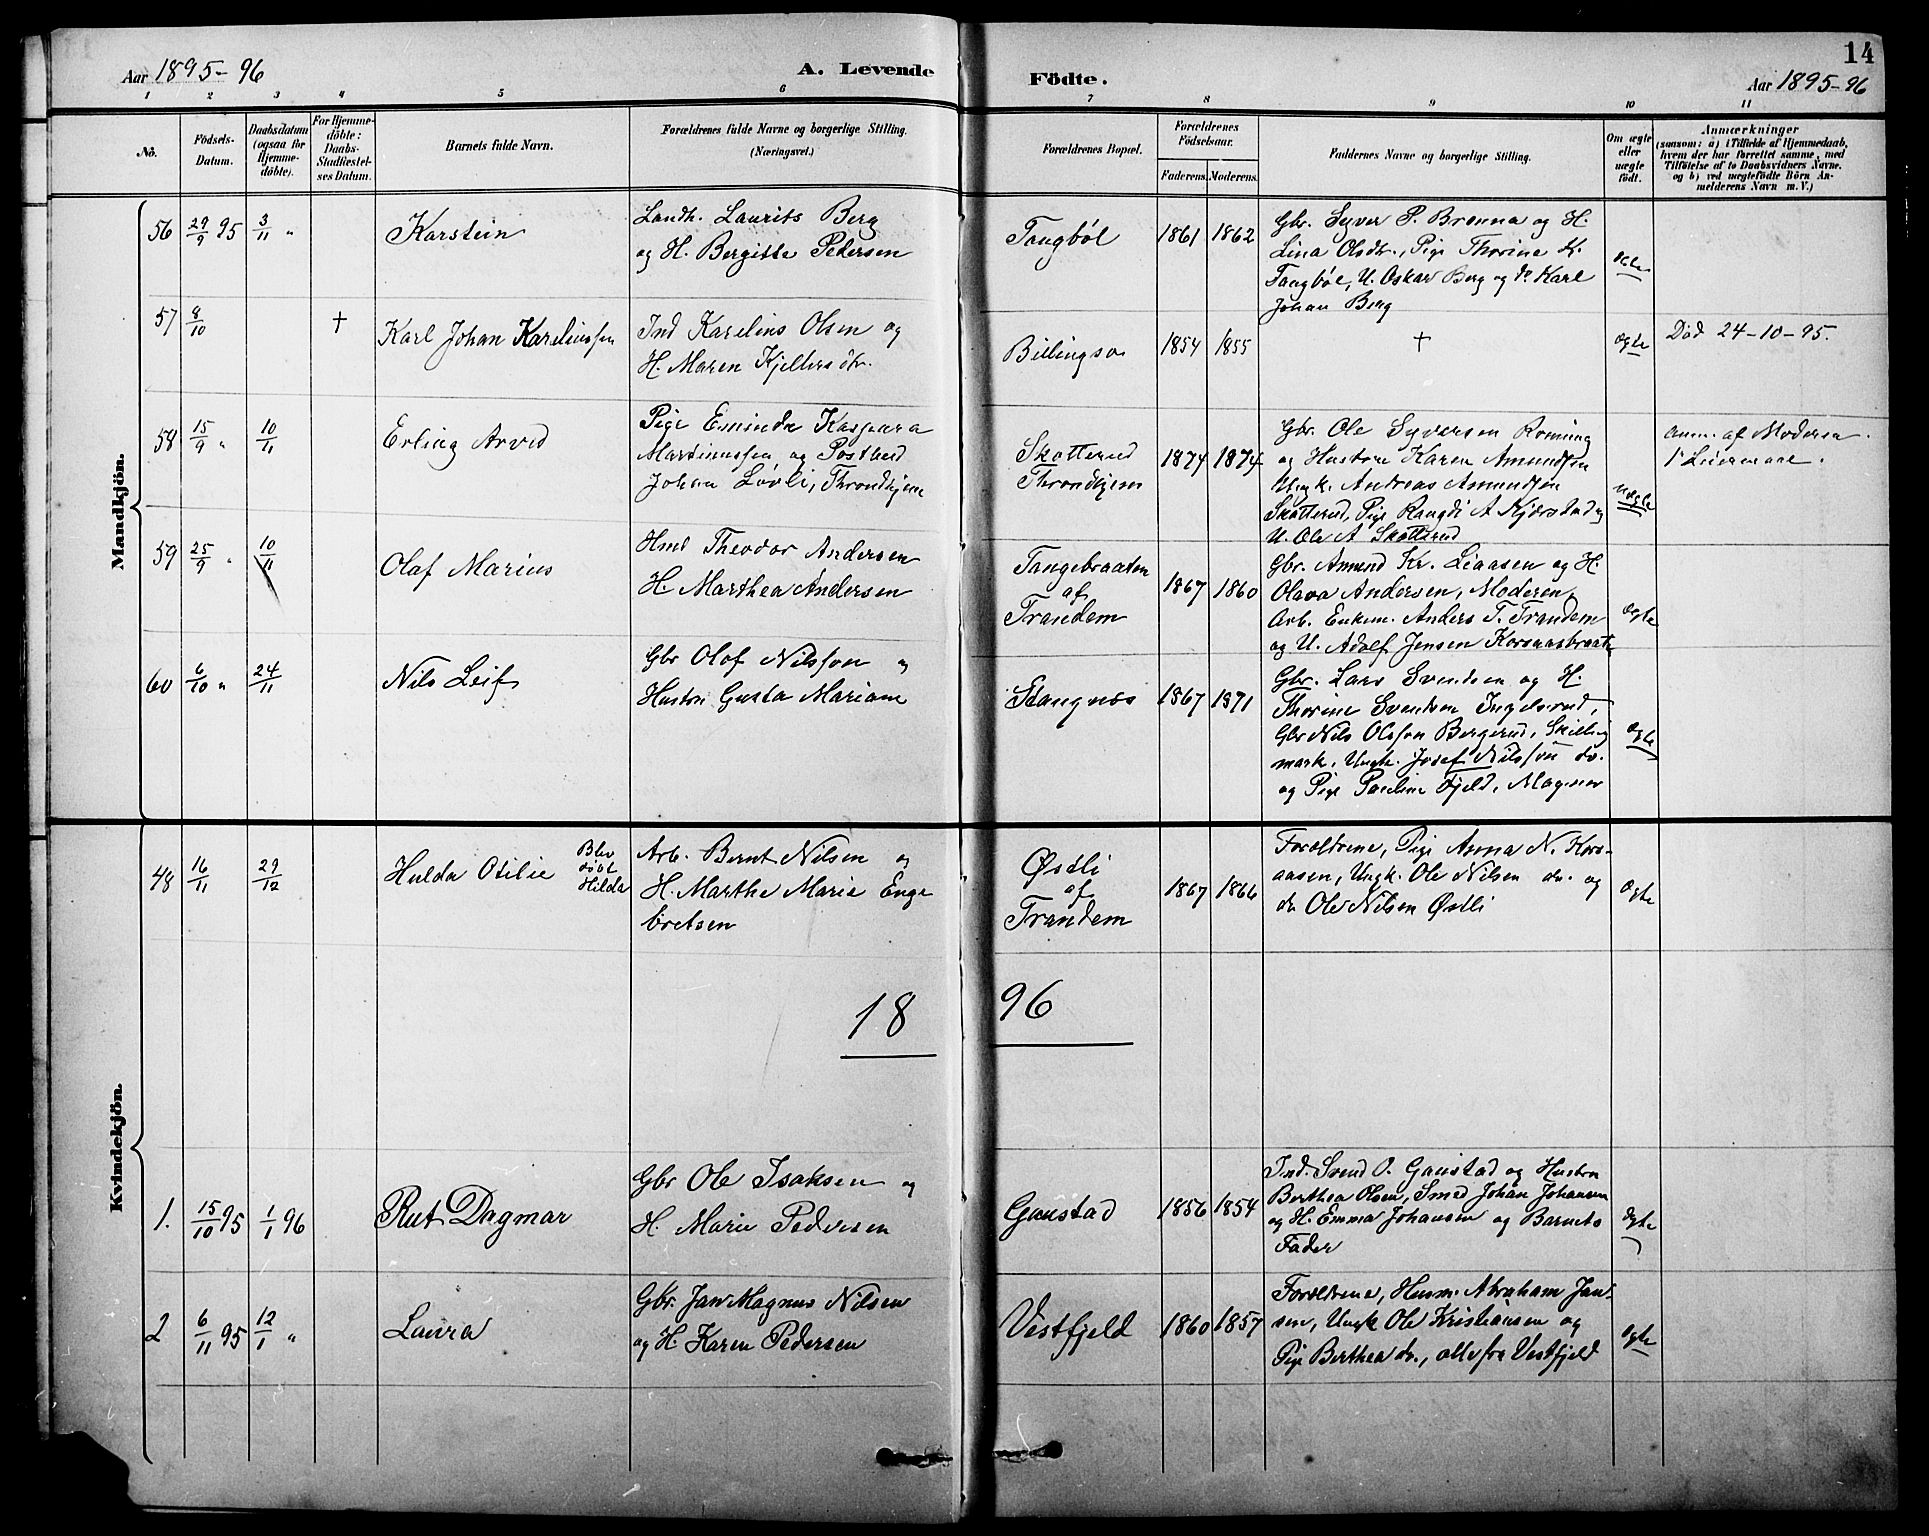 14
Aar 1895-96
A. Levende Födte.
Aar 1895-96
1 2 3 4 5 6 7 8 9 10 11
No.
Födsels-Datum.
Daabsdatum (ogsaa for Hjemme-döbte).
For Hjemme-döbte: Daabs-Stadfæstel-ses Datum.
Barnets fulde Navn.
Forældrenes fulde Navne og borgerlige Stilling. (Næringsvei.)
Forældrenes Bopæl.
Forældrenes Födselsaar.
Faderens. Moderens.
Faddernes Navne og borgerlige Stilling.
Om ægte eller uægte födt.
Anmærkninger
(saasom: a) i Tilfælde af Hjemmedaab, hvem der har forrettet samme, med Tilföielse af to Daabsvidners Navne. og b) ved uægtefödte Börn An-melderens Navn m. V.)
Mandkjön.
56 29/9 95 3/11 "
Karstein
Landh. Laurits Berg
og H. Bergitte Pedersen
Tangböl
1861 1862
Gbr. Syver P. Brenna og H.
Lina Olsdtr., Pige Thorine K.
Tangböl, U. Oskar Berg og do Karl
Johan Berg
ægte
57 8/10
†
Karl Johan Kareliussen
Ind Karelius Olsen og
H. Maren Kjellersdtr.
Billingso
1854 1855
†
ægte
Död 24-10-95.
58 15/9 " 10/11
Erling Arvid
Pige Eminda Kaspara
Martinussen og Postbud
Johan Løvli, Throndhjem
Skotterud
Throndhjem
1874 1874
Gbr. Ole Syversen Roming
og Hustru Karen Amundsen
Ungk. Andreas Amundsen
Skotterud, Pige Rangdi A Kjærstad og
U. Ole A Skotterud
uægte
Anm. af Moderen.
1' Leiermaal.
59 25/9 " 10/11
Olaf Marius
Hml Theodor Andersen
H. Marthea Andersen
Tangebraaten
af
Trandem
1867 1860
Gbr. Amund Kr. Liaasen og H.
Olava Andersen, Moderen,
Arb. Enkem. Anders T. Trandem
og U. Adolf Jensen Korsaasbraate
ægte
60 6/10 " 24/11
Nils Leif
Gbr Olof Nilsson og
Hustru Gusta Mariane
Stangnes
1867 1871
Gbr. Lars Svendsen og H.
Thorine Svendsen Ingelsrud,
Gbr Nils Olsson Bergerud, Skilling
mark, Ungk. Josef Nilsson do.
og Pige Pauline Fjeld, Magnor
ægte
Kvindekjön.
48 16/11 29/12
Hulda Otilie
Blev
døbt
Hilda
Arb. Bernt Nilsen og
H. Marthe Marie Enge
bretsen
Østli
af
Trandem
1867 1866
Foreldrene, Pige Anna N. Kors-
aasen, Ungk. Ole Nilsen do. og
do Ole Nilsen Østli
ægte
18 96
1. 15/10 95 1/1 96
Rut Dagmar
Gbr Ole Isaksen og
H. Marie Pedersen
Gaustad
1856 1854
Ind. Svend O. Gaustad og Hustru
Berthea Olsen, Smed Johan Johansen
og H. Emma Johansen og Barnets
Fader
ægte
2 6/11 95 12/1 "
Laura
Gbr. Jan Magnus Nilsen
og H Karen Pedersen
Vestfjeld
1860 1857
Foreldrene, Husm. Abraham Jan-
sen, Ungk Ole Kristiansen og
Pige Berthea do., alle fra Vestfjeld
ægte